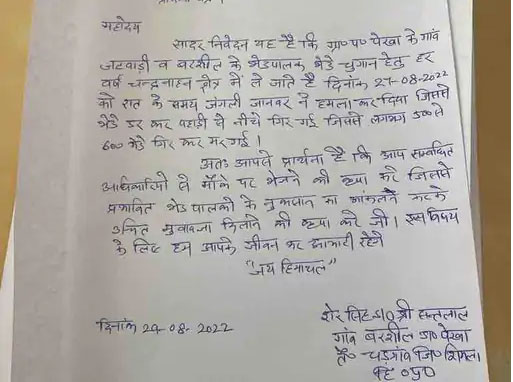 महोदय
सादर निवेदन यह है कि ग्रा० प० पेखा के गांव
जटवाड़ी व बरशील के भेडपालक भेड़े चुगान हेतु हर
वर्ष चन्द्रनाहन क्षेत्र में ले जाते है दिनांक 27-08-2022
को रात के समय जंगली जानवर ने हमला कर दिया जिससे
भेडे डर कर पहाडी से नीचे गिर गई जिससे लगभग 500 से
600 भेडे गिर कर मर गई।
अतः आपसे प्रार्थना है कि आप सम्बंधित
अधिकारियो को मौके पर भेजने की कृपा करे जिससे
प्रभावित भेड पालको के नुकसान का आंकलन करके
उचित मुवावजा दिलाने की कृपा करे जी। इस विषय
के लिए हम आपके जीवन भर आभारी रहेंगे
"जय हिमाचल"
शेर सिंह s/o श्री
गांव बरशील डा० पेखा
दिनांक 29-08-2022
तै० चडगांव जि० शिमला
हि० प्र०